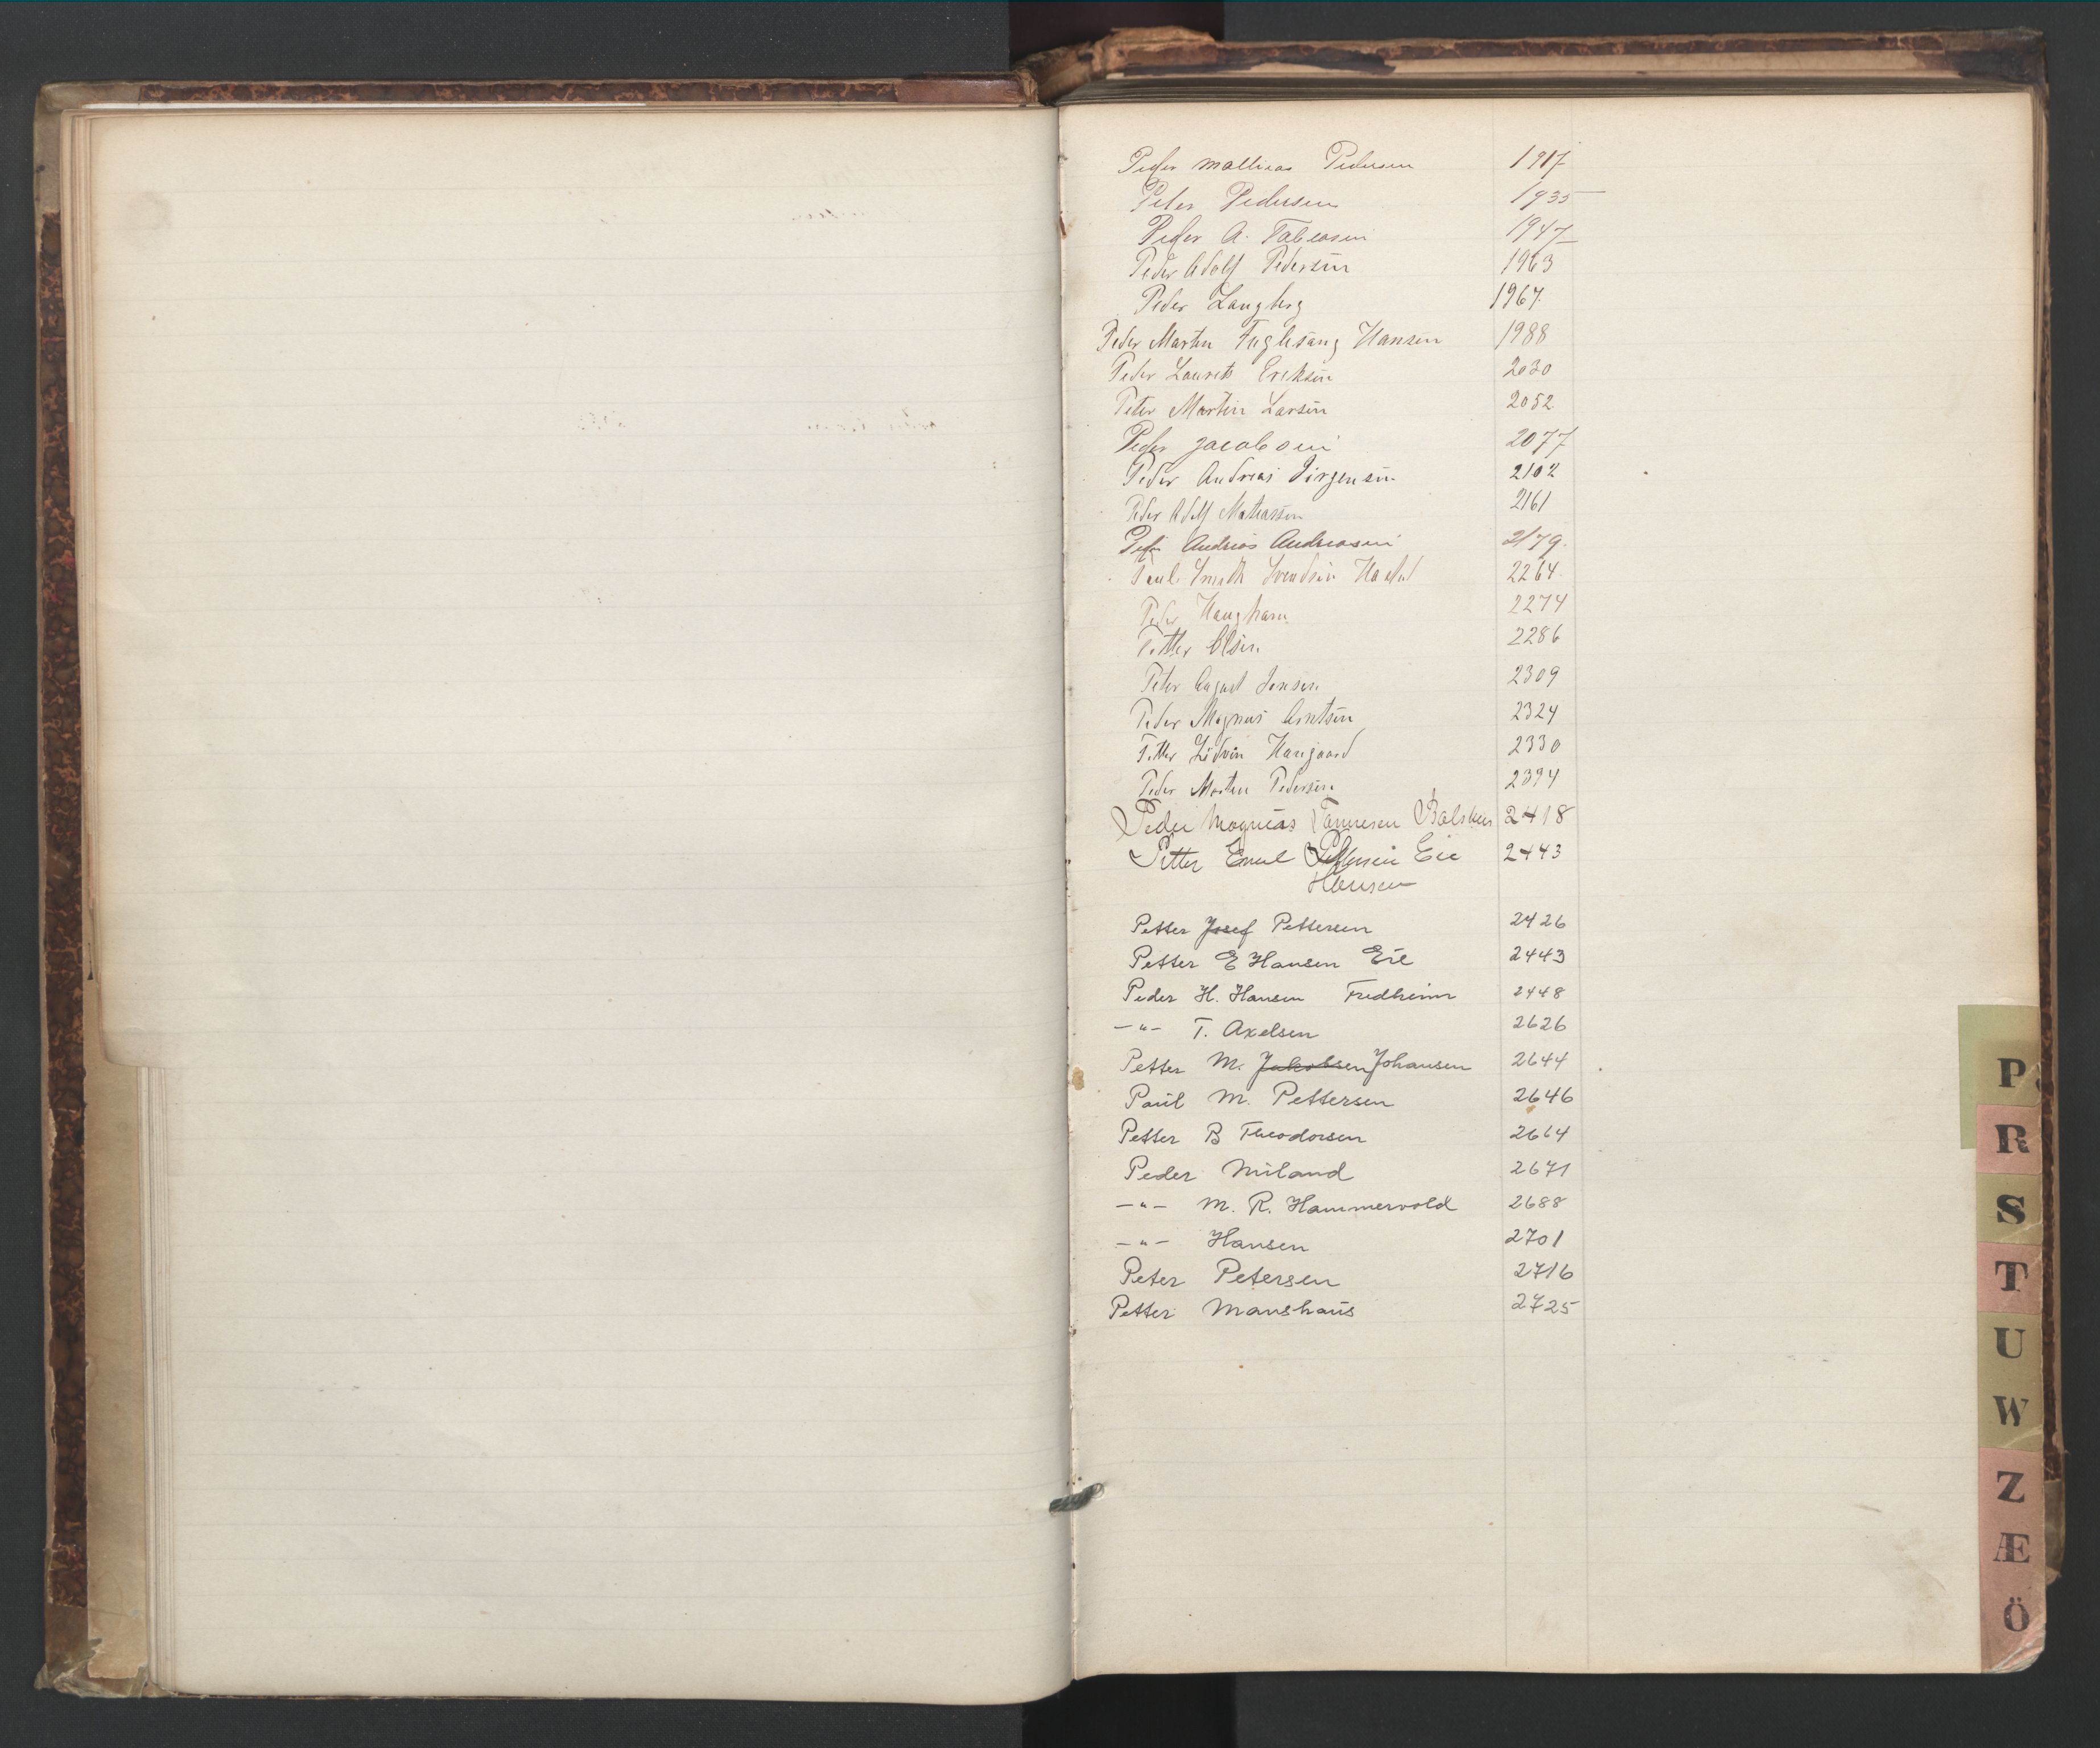 Peder Mathias Pedersen 1917
Peter Pedersen 1935
Peder A. Tobiasen 1947
Peder Adolf Pedersen 1963
Peder Langberg 1967.
Peder Martin Fuglesang Hansen 1988
Peder Laurits Eriksen 2030
Peter Martin Larsen 2052
Peder Jacobsen 2077
Peder Andreas Jörgensen 2102
Peder Adolf Mathiassen 2161
Peder Andreas Andreasen 2179.
Svendsen 2264
Peder 2274
Petter Olsen 2286
Peter August Jensen 2309
Peder Magnus Arntsen 2324
Petter Lidvin 2330
Peder Martin Pedersen 2394
Peder Magnus 2418
Petter Emil Eie 2443
Hansen
Petter Josef Pettersen 2426
Petter E Hansen Eie 2443
Peder H. Hansen Fredheim 2448
-"- T. Axelsen 2626
Petter M. Jakobsen Johansen 2644
Paul M. Pettersen 2646
Petter B Theodorsen 2664
Peder Miland 2671
-"- M. R. Hammervold 2688
-"- Hansen 2701
Peter Petersen 2716
Petter Manshaus 2725
P
R
S
T
U
W
Z
Æ
Ö